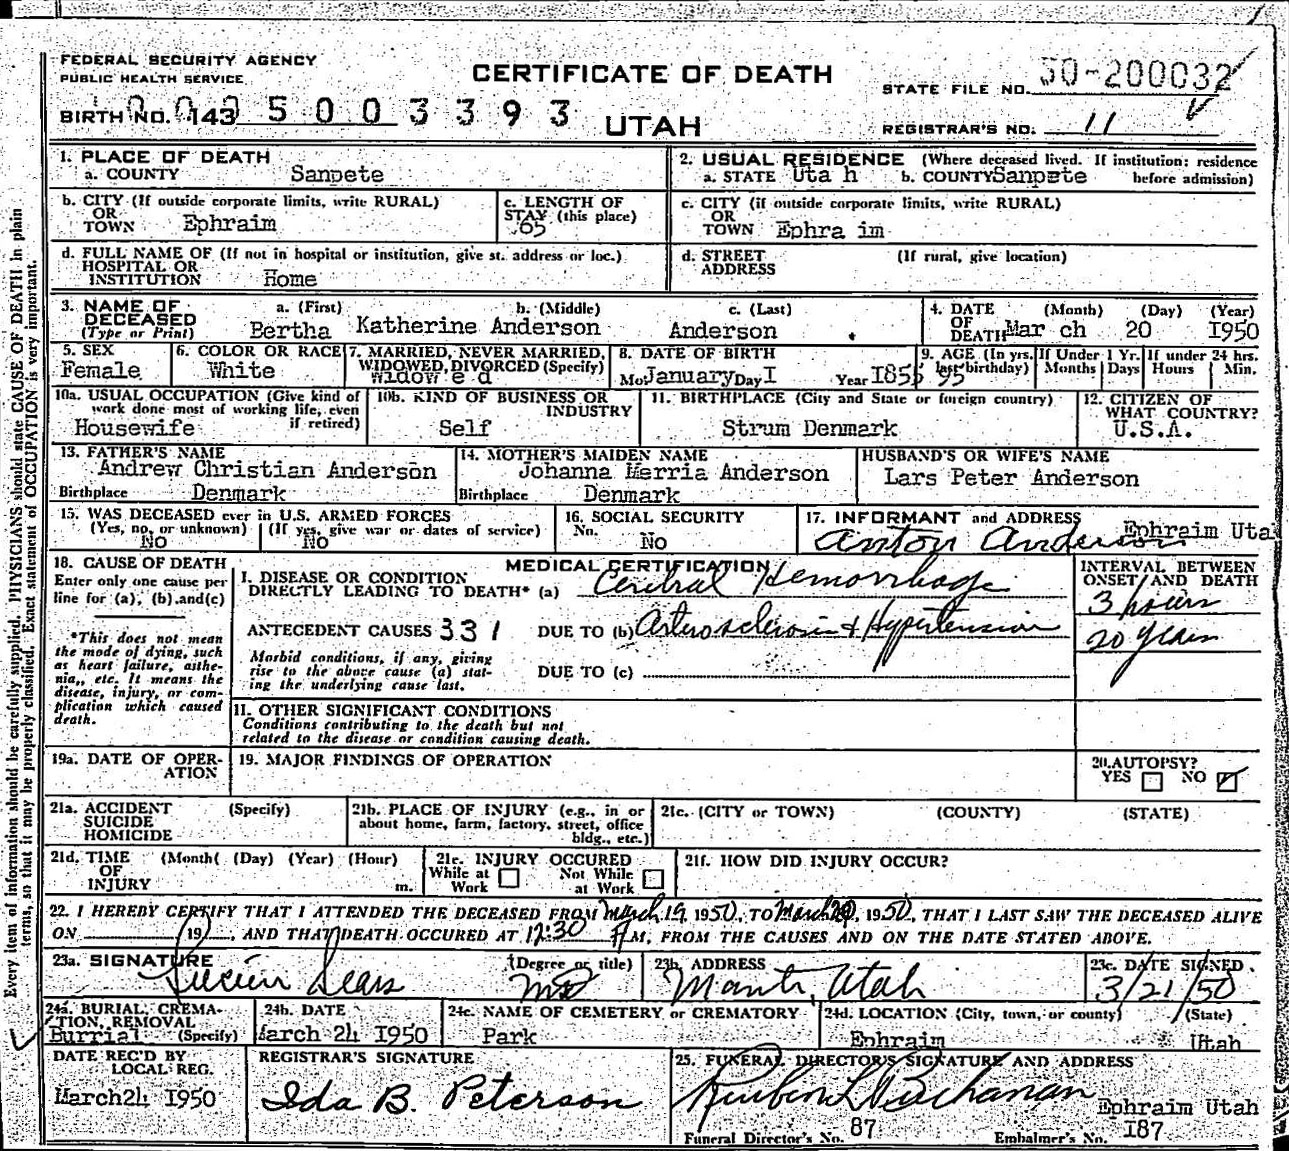 FEDERAL SECURITY AGENCY
PUBLIC HEALTH SERVICE
CERTIFICATE OF DEATH
STATE FILE NO. 50-200032
BIRTH NO. 143 5 0 0 3 3 9 3
UTAH
REGISTRAR'S NO. 11
Every item of information should be carefully supplied. PHYSICIANS should state CAUSE OF DEATH in plain
terms, so that it may be properly classified. Exact statement of OCCUPATION is very important.
1. PLACE OF DEATH
a. COUNTY Sanpete
2. USUAL RESIDENCE (Where deceased lived. If institution: residence
a. STATE Uta h b. COUNTY Sanpete before admission)
b. CITY (If outside corporate limits, write RURAL)
OR
TOWN Ephraim
c. LENGTH OF
STAY (this place)
65
c. CITY (if outside corporate limits, write RURAL)
OR
TOWN Ephra im
d. FULL NAME OF (If not in hospital or institution, give st. address or loc.)
HOSPITAL OR
INSTITUTION Home
d. STREET (If rural, give location)
ADDRESS
3. NAME OF a. (First) b. (Middle) c. (Last)
DECEASED
(Type or Print) Bertha Katherine Anderson Anderson
4. DATE (Month) (Day) (Year)
OF
DEATH Mar ch 20 1950
5. SEX
Female
6. COLOR OR RACE
White
7. MARRIED, NEVER MARRIED,
WIDOWED, DIVORCED (Specify)
Widow e d
8. DATE OF BIRTH
Mo. January Day I Year 1855
9. AGE (In yrs. last birthday) 95
If Under 1 Yr. Months Days
If under 24 hrs. Hours Min.
10a. USUAL OCCUPATION (Give kind of
work done most of working life, even
if retired)
Housewife
10b. KIND OF BUSINESS OR
INDUSTRY
Self
11. BIRTHPLACE (City and State or foreign country)
Strum Denmark
12. CITIZEN OF
WHAT COUNTRY?
U.S.A.
13. FATHER'S NAME
Andrew Christian Anderson
Birthplace Denmark
14. MOTHER'S MAIDEN NAME
Johanna Merria Anderson
Birthplace Denmark
HUSBAND'S OR WIFE'S NAME
Lars Peter Anderson
15. WAS DECEASED ever in U.S. ARMED FORCES
(Yes, no, or unknown) (If yes, give war or dates of service)
No No
16. SOCIAL SECURITY
No. No
17. INFORMANT and ADDRESS Ephraim Uta
Anton Anderson
18. CAUSE OF DEATH
Enter only one cause per
line for (a), (b) and (c)
*This does not mean
the mode of dying, such
as heart failure, asthe-
nia, etc. It means the
disease, injury, or com-
plication which caused
death.
MEDICAL CERTIFICATION
I. DISEASE OR CONDITION
DIRECTLY LEADING TO DEATH* (a) Cerebral Hemorrhage
INTERVAL BETWEEN
ONSET AND DEATH
3 hours
ANTECEDENT CAUSES 331 DUE TO (b) Arterosclerosis & Hypertension
20 years
Morbid conditions, if any, giving
rise to the above cause (a) stat-
ing the underlying cause last.
DUE TO (c)
11. OTHER SIGNIFICANT CONDITIONS
Conditions contributing to the death but not
related to the disease or condition causing death.
19a. DATE OF OPER-
ATION
19. MAJOR FINDINGS OF OPERATION
20. AUTOPSY?
YES NO
21a. ACCIDENT (Specify)
SUICIDE
HOMICIDE
21b. PLACE OF INJURY (e.g., in or
about home, farm, factory, street, office
bldg., etc.)
21c. (CITY or TOWN) (COUNTY) (STATE)
21d. TIME (Month( (Day) (Year) (Hour)
OF
INJURY m.
21e. INJURY OCCURED
While at Work Not While at Work
21f. HOW DID INJURY OCCUR?
22. I HEREBY CERTIFY THAT I ATTENDED THE DECEASED FROM March 19, 1950, TO March 20, 1950, THAT I LAST SAW THE DECEASED ALIVE
ON 19 , AND THAT DEATH OCCURED AT 12:30 AM, FROM THE CAUSES AND ON THE DATE STATED ABOVE.
23a. SIGNATURE (Degree or title)
Lucien Sears MD
23b. ADDRESS
Manti, Utah
23c. DATE SIGNED
3/21/50
24a. BURIAL, CREMA-
TION, REMOVAL
Burrial (Specify)
24b. DATE
March 24 1950
24c. NAME OF CEMETERY or CREMATORY
Park
24d. LOCATION (City, town, or county) (State)
Ephraim Utah
DATE REC'D BY
LOCAL REG.
March 24 1950
REGISTRAR'S SIGNATURE
Ida B. Peterson
25. FUNERAL DIRECTOR'S SIGNATURE AND ADDRESS
Reuben L Buchanan Ephraim Utah
Funeral Director's No. 87 Embalmer's No. I87